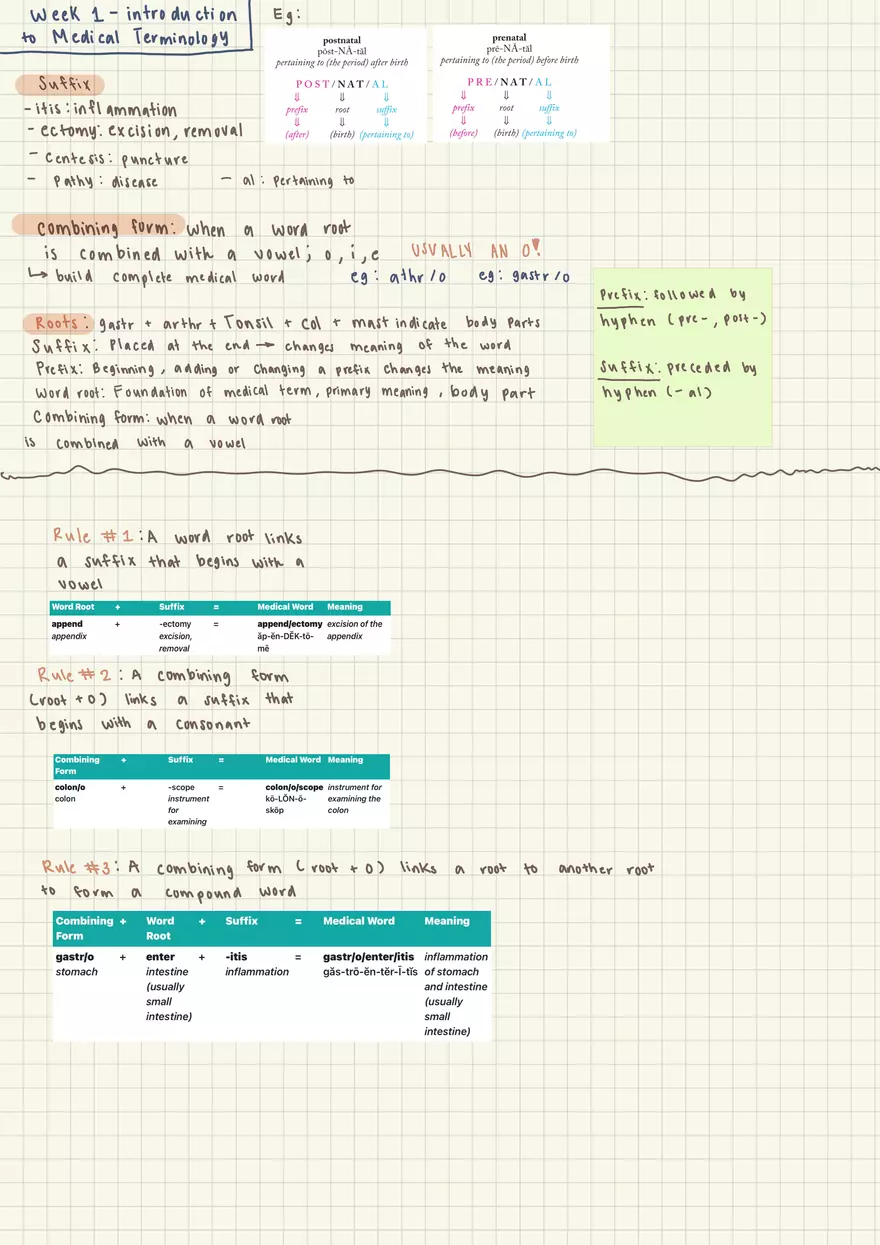 Week 1 - introduction
to Medical Terminology
Eg:
postnatal
pōst-NĀ-tăl
pertaining to (the period) after birth
POST/NAT/AL
⇓ ⇓ ⇓
prefix root suffix
⇓ ⇓ ⇓
(after) (birth) (pertaining to)
prenatal
prē-NĀ-tăl
pertaining to (the period) before birth
PRE/NAT/AL
⇓ ⇓ ⇓
prefix root suffix
⇓ ⇓ ⇓
(before) (birth) (pertaining to)
Suffix
- itis : inflammation
- ectomy: excision, removal
- Centesis: puncture
- Pathy: disease - al: Pertaining to
Combining form: when a word root
is combined with a vowel; o, i, e USUALLY AN O!
↳ build complete medical word eg: athr/o eg: gastr/o
Roots: gastr + arthr + Tonsil + Col + mast indicate body parts
Suffix: Placed at the end → changes meaning of the word
Prefix: Beginning, adding or changing a prefix changes the meaning
Word root: Foundation of medical term, primary meaning, body part
Combining form: when a word root
is combined with a vowel
Prefix: followed by
hyphen (pre-, post-)
Suffix: preceded by
hyphen (-al)
Rule #1: A word root links
a suffix that begins with a
vowel
Word Root + Suffix = Medical Word Meaning
append + -ectomy = append/ectomy excision of the
appendix excision, ăp-ĕn-DĔK-tō- appendix
removal mē
Rule #2: A combining form
(root + o) links a suffix that
begins with a consonant
Combining + Suffix = Medical Word Meaning
Form
colon/o + -scope = colon/o/scope instrument for
colon instrument kō-LŎN-ō- examining the
for skōp colon
examining
Rule #3: A combining form (root + o) links a root to another root
to form a compound word
Combining + Word + Suffix = Medical Word Meaning
Form Root
gastr/o + enter + -itis = gastr/o/enter/itis inflammation
stomach intestine inflammation găs-trō-ĕn-tĕr-Ī-tĭs of stomach
(usually and intestine
small (usually
intestine) small
intestine)